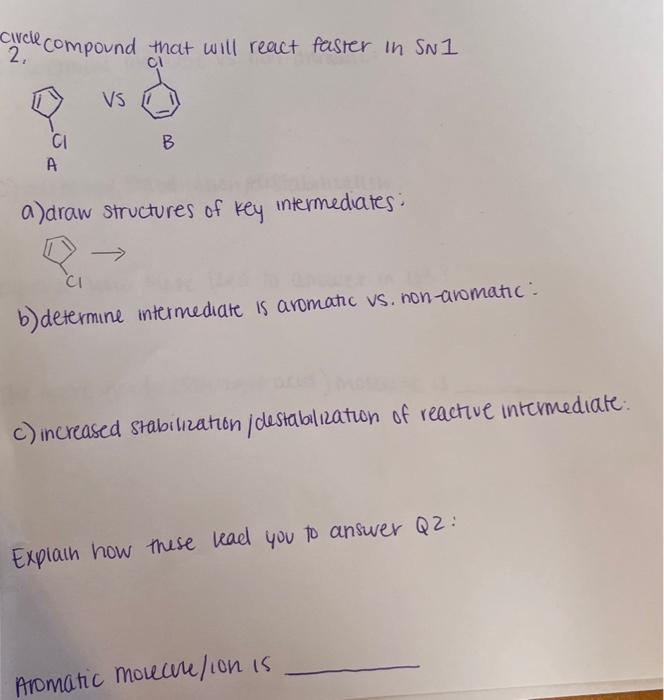 Circle compound that will react faster in SN1
2.
Cl
VS
Cl
B
A
a) draw structures of key intermediates:
→
Cl
b) determine intermediate is aromatic vs. non-aromatic:
c) increased stabilization / destabilization of reactive intermediate:
Explain how these lead you to answer Q2:
Aromatic molecule/ion is ________